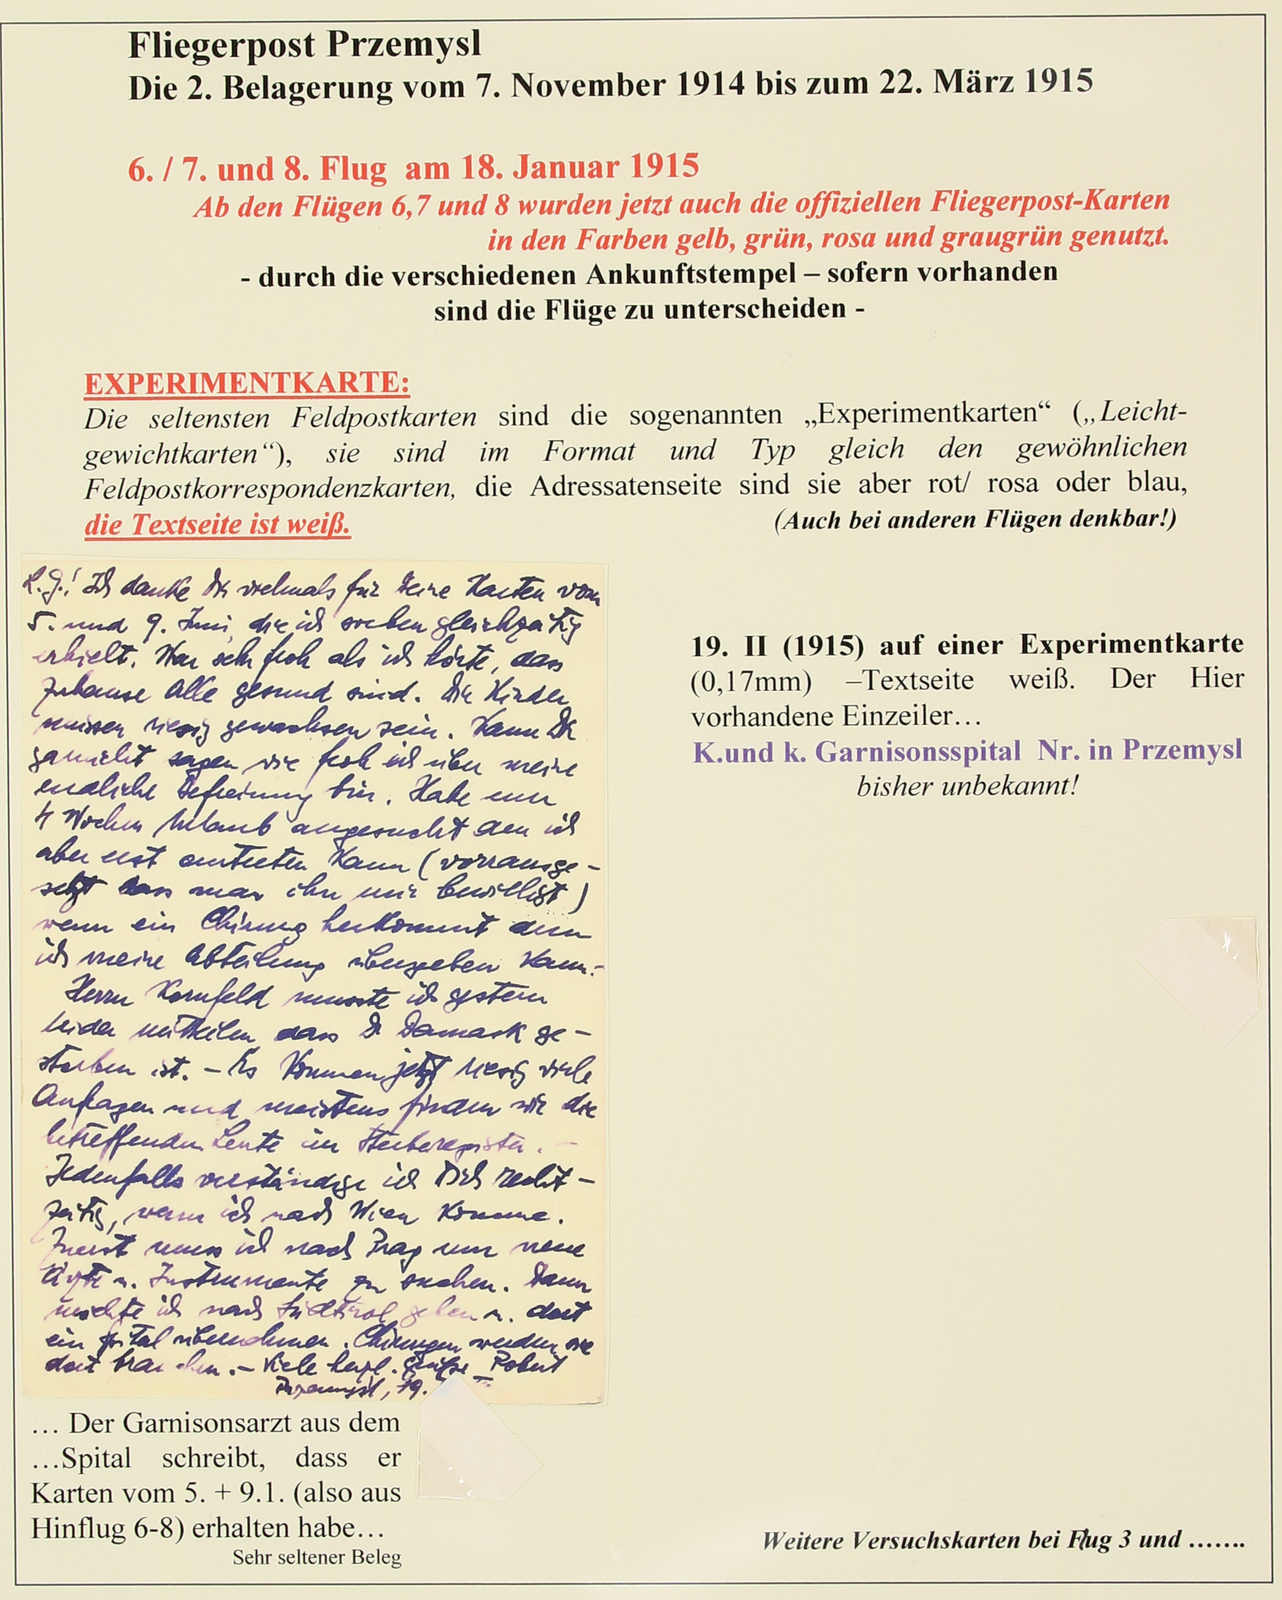 Fliegerpost Przemysl
Die 2. Belagerung vom 7. November 1914 bis zum 22. März 1915
6. / 7. und 8. Flug am 18. Januar 1915
Ab den Flügen 6,7 und 8 wurden jetzt auch die offiziellen Fliegerpost-Karten
in den Farben gelb, grün, rosa und graugrün genutzt.
- durch die verschiedenen Ankunftstempel – sofern vorhanden
sind die Flüge zu unterscheiden -
EXPERIMENTKARTE:
Die seltensten Feldpostkarten sind die sogenannten „Experimentkarten“ („Leicht-
gewichtkarten“), sie sind im Format und Typ gleich den gewöhnlichen
Feldpostkorrespondenzkarten, die Adressatenseite sind sie aber rot/ rosa oder blau,
die Textseite ist weiß. (Auch bei anderen Flügen denkbar!)
L. G.! Ich danke Dir vielmals für Deine Karten vom
5. und 9. Juni, die ich soeben gleichzeitig
erhielt. War sehr froh als ich hörte, dass
zuhause alle gesund sind. Die Kinder
müssen riesig gewachsen sein. Kann Dir
garnicht sagen wie froh ich über meine
endliche Befreiung bin. Habe nun
4 Wochen Urlaub angesucht den ich
aber erst antreten kann (vorrausge-
setzt dass man ihn mir bewilligt)
wenn ein Chirurg herkommt dem
ich meine Abteilung übergeben kann.-
Herrn Kornfeld musste ich gestern
leider mitteilen dass Dr Damask ge-
storben ist. - Es kommen jetzt riesig viele
Anfragen und meistens finden wir die
betreffenden Leute im Sterberegister. -
Jedenfalls verständige ich Dich recht-
zeitig, wenn ich nach Wien komme.
Zuerst muss ich nach Prag um neue
Ärzte u. Instrumente zu suchen. Dann
möchte ich nach Südtirol gehen u. dort
ein Spital übernehmen. Chirurgen werden sie
dort brauchen. - Viele herzl. Grüße Robert
Przemysl, 19.
19. II (1915) auf einer Experimentkarte
(0,17mm) –Textseite weiß. Der Hier
vorhandene Einzeiler…
K.und k. Garnisonsspital Nr. in Przemysl
bisher unbekannt!
… Der Garnisonsarzt aus dem
…Spital schreibt, dass er
Karten vom 5. + 9.1. (also aus
Hinflug 6-8) erhalten habe…
Sehr seltener Beleg
Weitere Versuchskarten bei Flug 3 und …….